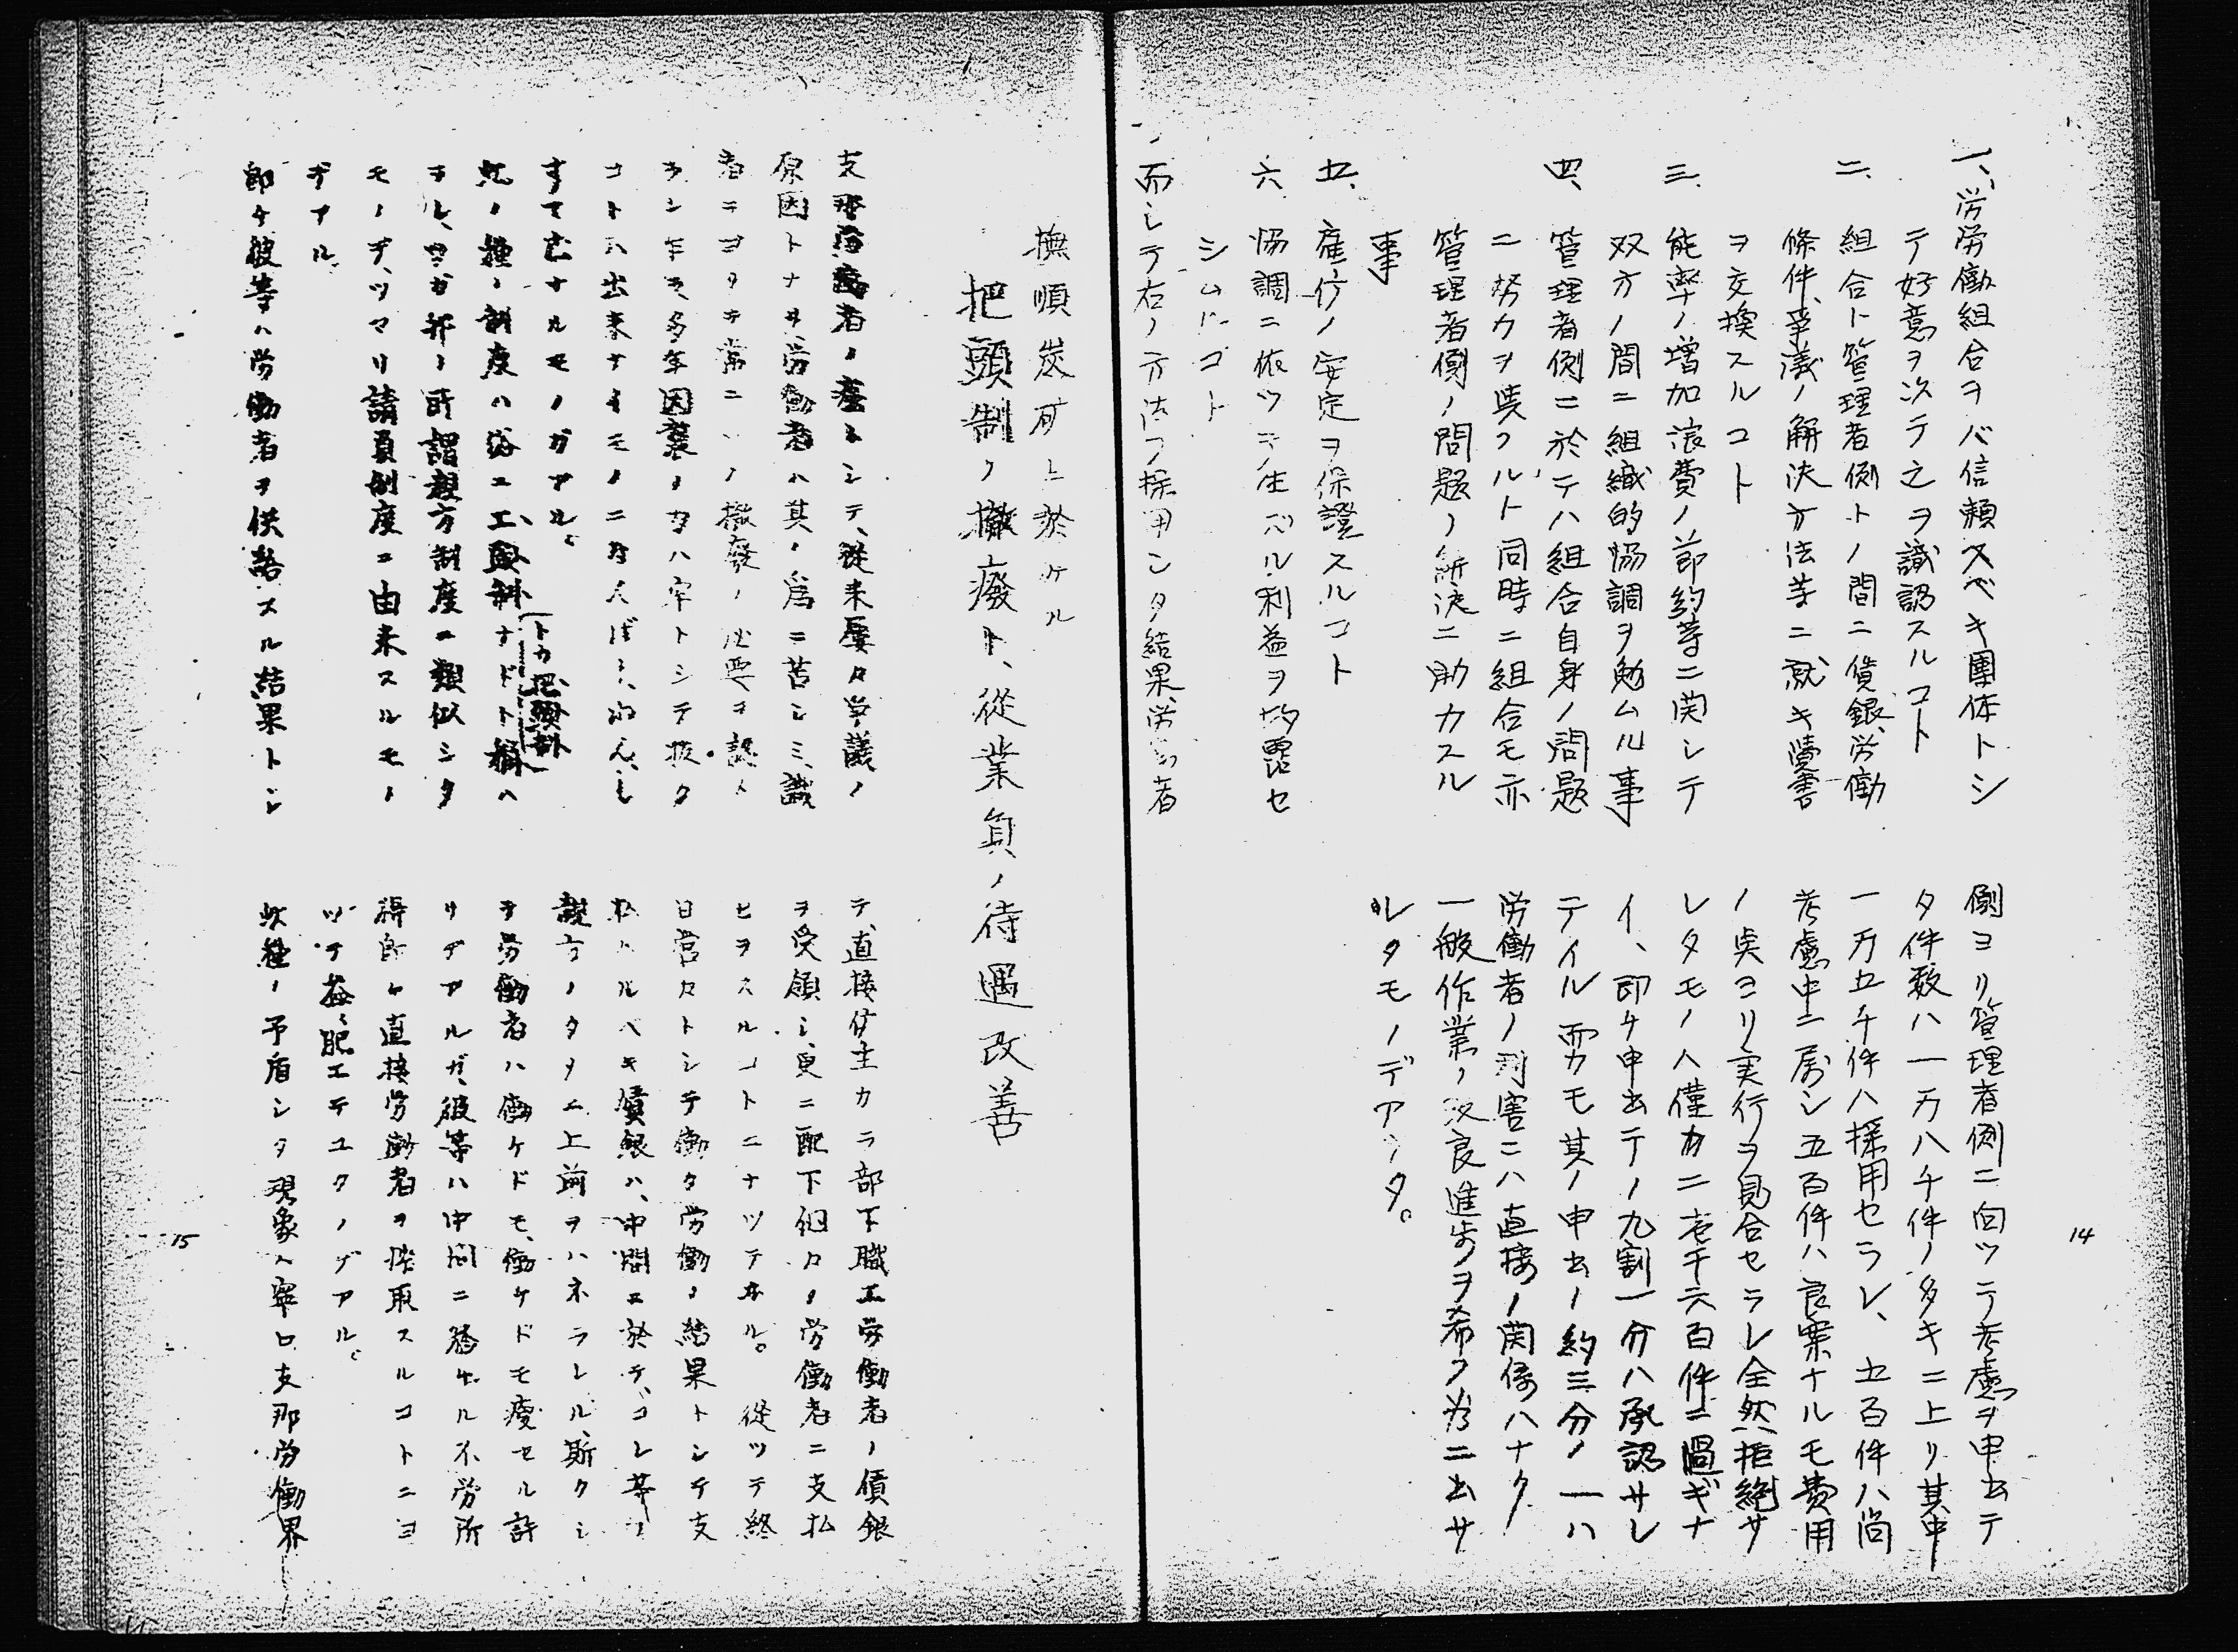 一、労働組合ヲバ信頼スベキ團体トシ
テ好意ヲ以テ之ヲ識認スルコト
二、組合ト管理者側トノ間ニ賃銀、労働
條件、爭議ノ解決方法等ニ就キ覺書
ヲ交換スルコト
三、能率ノ増加浪費ノ節約等ニ関シテ
双方ノ間ニ組織的協調ヲ勉ムル事
四、管理者側ニ於テハ組合自身ノ問題
ニ努力ヲ拂フルト同時ニ組合モ亦
管理者側ノ問題ノ解決ニ助力スル
事
五、産業ノ安定ヲ保證スルコト
六、協調ニ依ツテ生ズル利益ヲ均霑セ
シムルコト
而シテ右ノ方法ヲ採用シタ結果、労働者
側ヨリ管理者側ニ向ツテ考慮ヲ申出テ
タ件数ハ一万八千件ノ多キニ上リ其中
一万五千件ハ採用セラレ、五百件ハ尚
考慮中ニ屬シ五百件ハ良案ナルモ費用
ノ点ヨリ実行ヲ見合セラレ全然拒絶サ
レタモノハ僅カニ壱千六百件ニ過ギナ
イ、即チ申出テノ九割一分ハ承認サレ
テイル而カモ其ノ申出ノ約三分ノ一ハ
労働者ノ利害ニハ直接ノ関係ハナク
一般作業ノ改良進歩ヲ希フ為ニ出サ
レタモノデアツタ。
14
撫順炭砿ニ於ケル
把頭制ノ撤廢ト、從業員ノ待遇改善
支那労働者ノ癌トシテ、從来屡々爭議ノ
原因トナリ、労働者ハ其ノ為ニ苦シミ、識
者ニヨリテ常ニソノ撤廢ノ必要ヲ認メ
ラレ乍モ、多年因襲ノ力ハ牢トシテ抜ク
コトハ出来ナイモノニ
ナルモノガアル。
此ノ種ノ制度ハ俗ニ工、頭制ナドト稱ヘ
トカ把頭制
ヲル、我ガ邦ノ所謂親方制度ニ類似シタ
モノデ、ツマリ請負制度ニ由来スルモノ
デアル
即チ彼等ハ労働者ヲ供給スル結果トシ
テ、直接傭主カラ部下職工労働者ノ賃銀
ヲ受領シ、更ニ配下個々ノ労働者ニ支払
ヒヲスルコトニナツテ居ル。從ツテ終
日営々トシテ働タ労働ノ結果トシテ支
払ハルベキ賃銀ハ、中間ニ於テ、コレ等ノ
親方ノタメニ上前ヲハネラレル、斯クシ
テ労働者ハ働ケドモ、働ケドモ痩セル許
リデアルガ、彼等ハ中間ニ於ケル不労所
得即チ直接労働者ヲ搾取スルコトニヨ
ツテ益々肥エテユクノデアル。
此種ノ矛盾シタ現象ハ寧ロ支那労働界
15